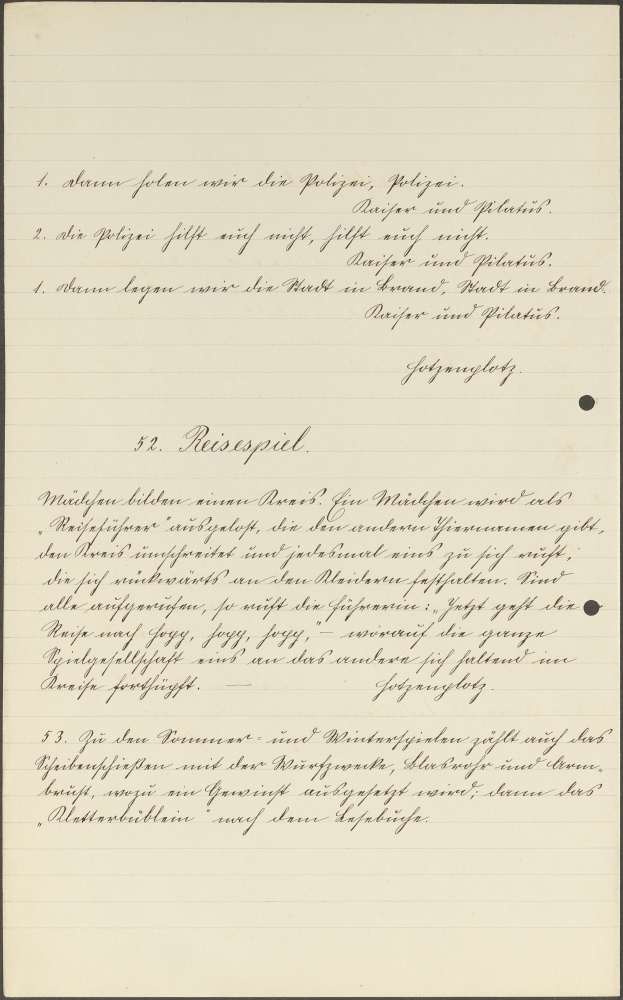 1. Dann holen wir die Polizei, Polizei.
Kaiser und Pilatus.
2. Die Polizei hilft euch nicht, hilft euch nicht.
Kaiser und Pilatus.
1. Dann legen wir die Stadt in Brand, Stadt in Brand.
Kaiser und Pilatus.
Hotzenplotz.
52. Reisespiel.
Mädchen bilden einen Kreis. Ein Mädchen wird als
"Reiseführer" ausgelost, die den andern Thiernamen gibt,
den Kreis umschreitet und jedesmal eins zu sich ruft,
die sich rückwärts an den Kleidern festhalten. Sind
alle aufgerufen, so ruft die Führerin: "Jetzt geht die
Reise nach Hopp, hopp, hopp," – worauf die ganze
Spielgesellschaft eins an das andere sich haltend im
Kreise forthüpft. — Hotzenplotz.
53. Zu den Sommer- und Winterspielen zählt auch das
Scheibenschießen mit der Wurfzwecke, Blasrohr und Arm-
brust, wozu ein Gewinst ausgesetzt wird; dann das
"Kletterbüblein" nach dem Lesebuche.